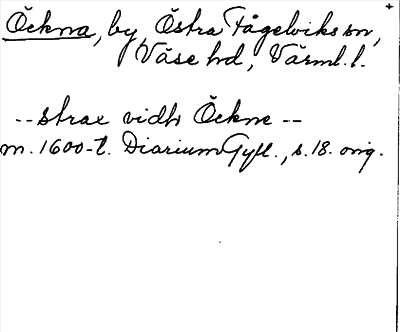 Öckna, by, Östra Fågelviks sn,
Väse hd, Värml. l.
-- strax vidh Öckne --
m. 1600-t. Diarium Gyll., s. 18. orig.